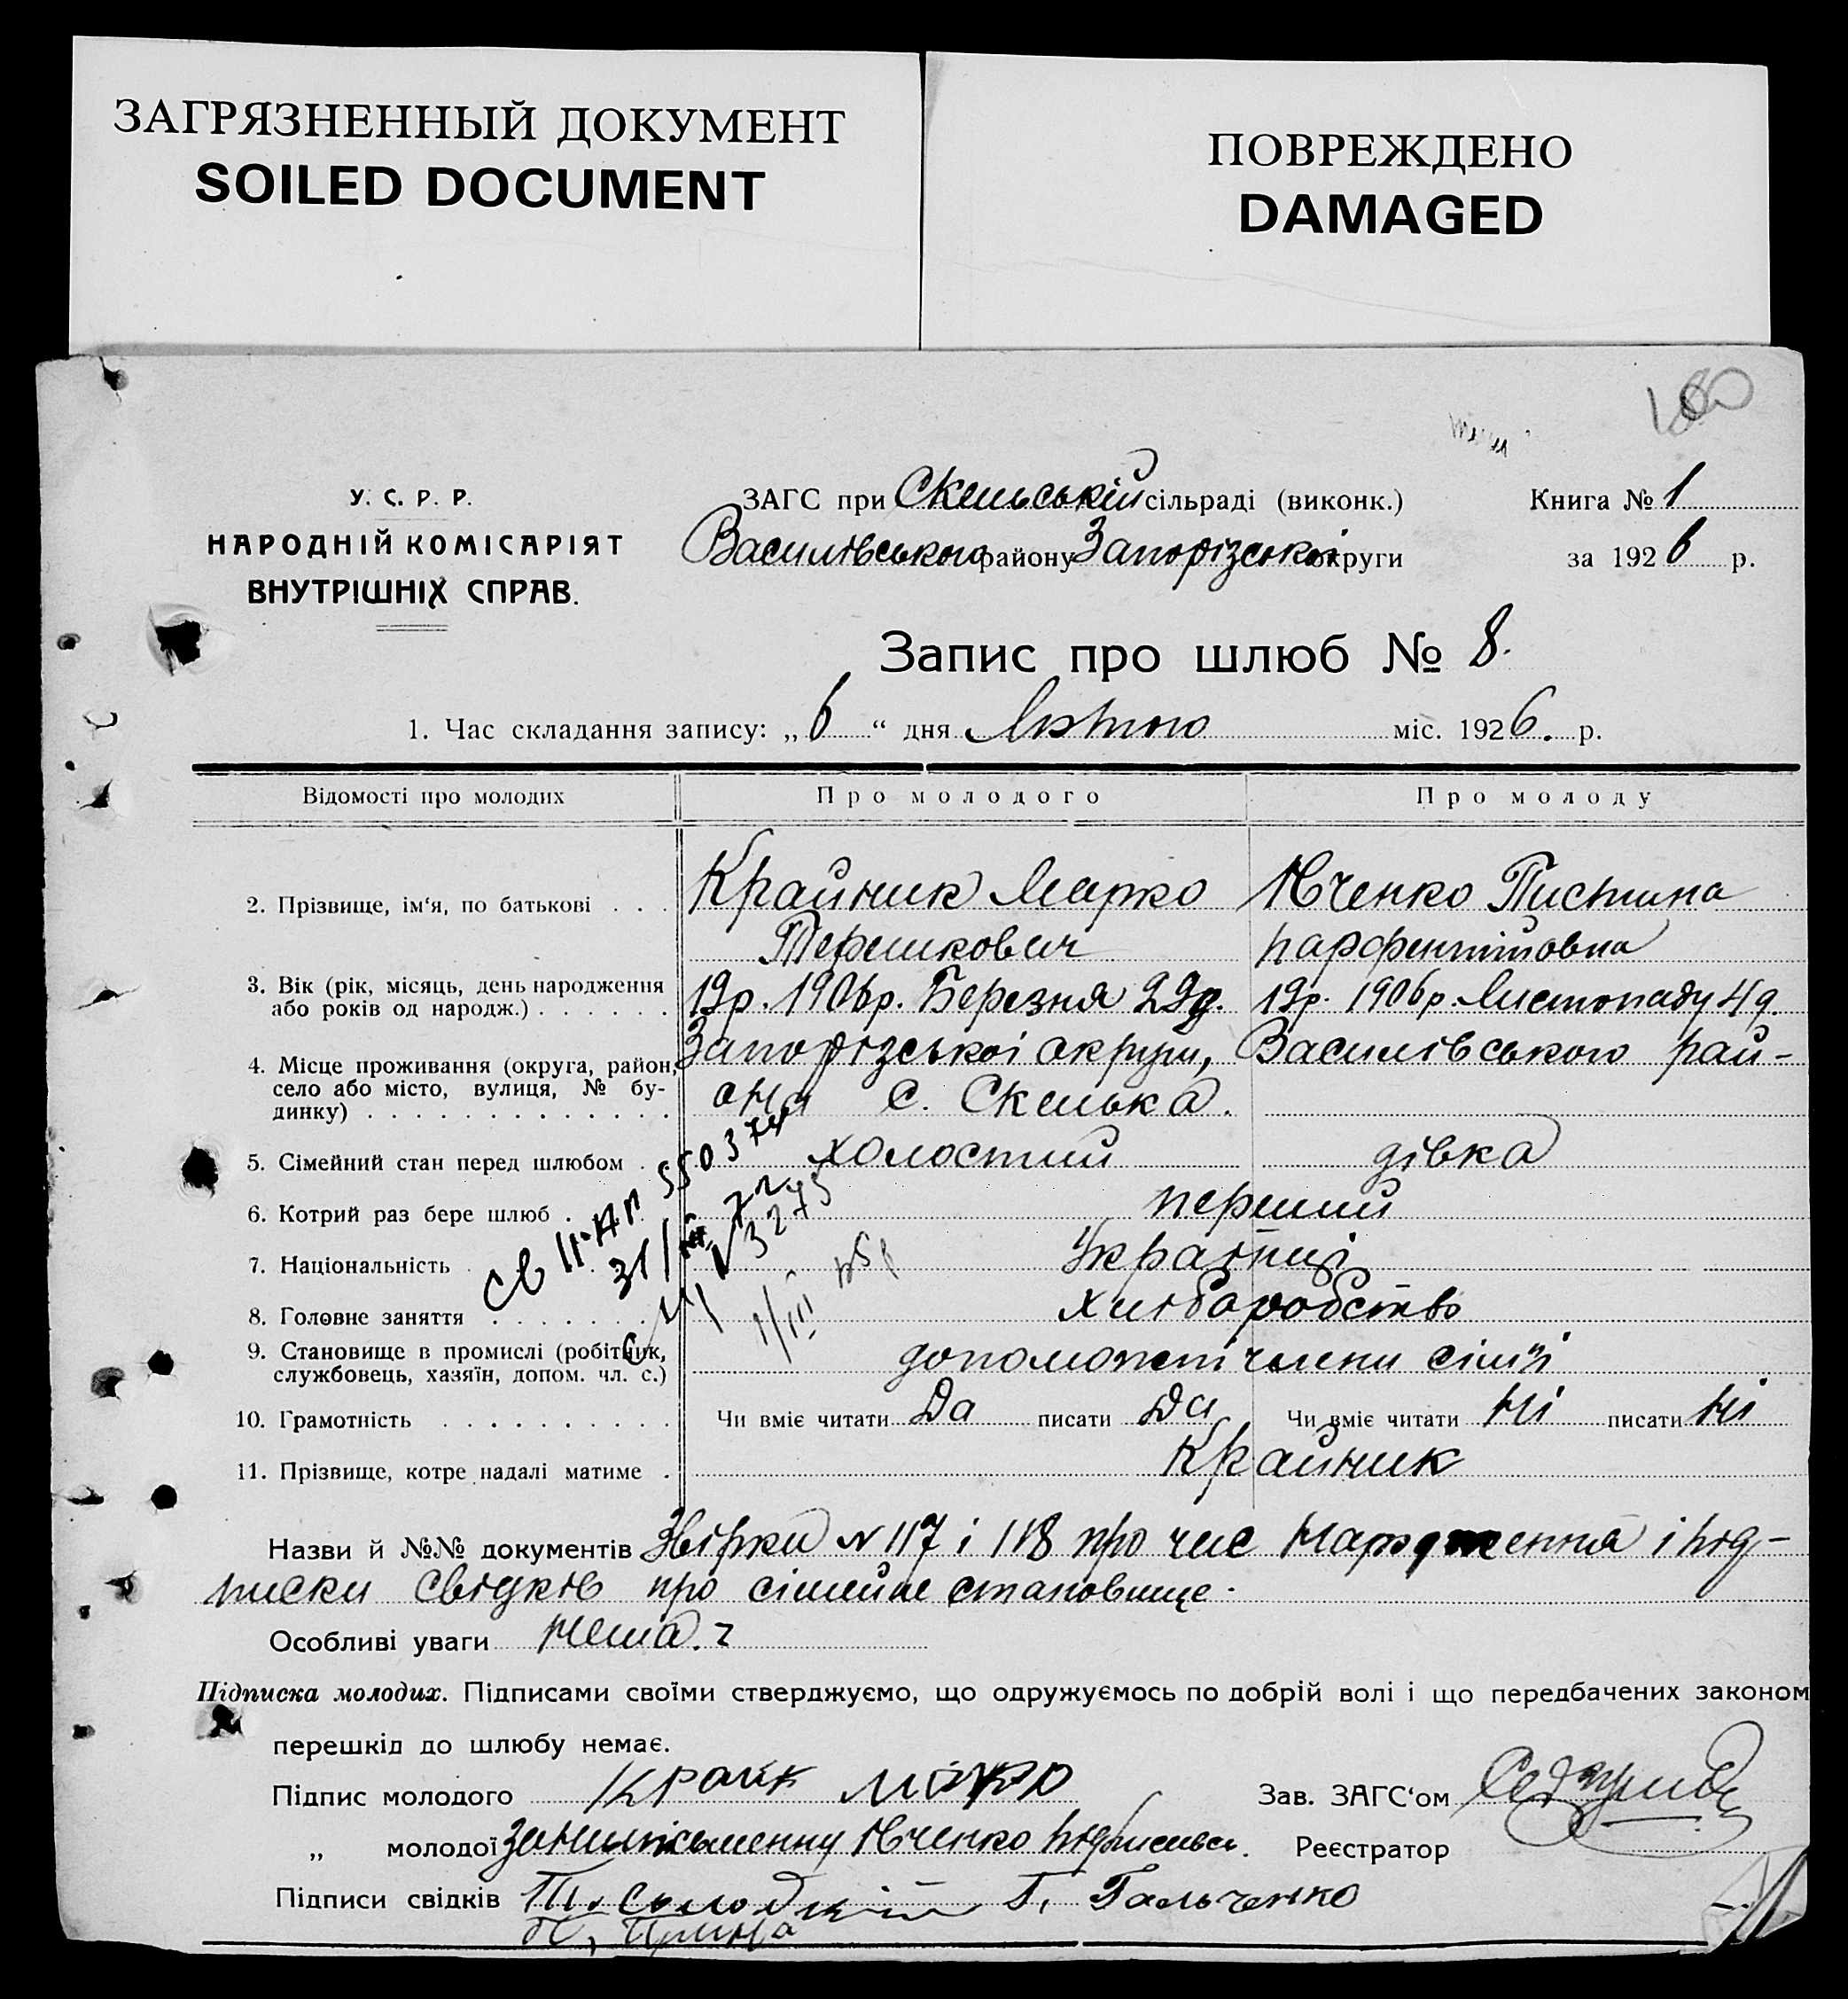 ЗАГРЯЗНЕННЫЙ ДОКУМЕНТ
SOILED DOCUMENT
ПОВРЕЖДЕНО
DAMAGED
У. С. Р. Р.
НАРОДНІЙ КОМІСАРІЯТ
ВНУТРІШНІХ СПРАВ.
ЗАГС при Скельській сільраді (виконк.)
Василівського району Запорізської округи
Книга № 1
за 1926 р.
Запис про шлюб № 8.
1. Час складання запису: „6“ дня Лютого міс. 1926. р.
Відомості про молодих Про молодого Про молоду
2. Прізвище, ім‘я, по батькові . . . Крайник Марко Ювченко Пистина
Терешкович Парфентіївна
3. Вік (рік, місяць, день народження 19р. 1906р. Березня 29д. 19р. 1906р. Листопаду 4д.
або років од народж.) . . . . . .
4. Місце проживання (округа, район, Запорізської округи, Василівського рай-
село або місто, вулиця, № бу- ону с. Скелька.
динку) . . . . . . . . . . . . .
5. Сімейний стан перед шлюбом . холостий дівка
6. Котрий раз бере шлюб . перший
7. Національність . Українці
8. Головне заняття . . . . . . . хліборобство
9. Становище в промислі (робітник, допоможні члени сім'ї
службовець, хазяїн, допом. чл. с.)
10. Грамотність . . . . . . . . . . Чи вміє читати Да писати Да Чи вміє читати Ні писати Ні
11. Прізвище, котре надалі матиме . Крайник
Назви й №№ документів Звірки № 117 і 118 про час народження і під-
писки свідків про сімейне становище.
Особливі уваги нема.
Підписка молодих. Підписами своїми стверджуємо, що одружуємось по добрій волі і що передбачених законом
перешкід до шлюбу немає.
Підпис молодого Марко Зав. ЗАГС‘ом
„ молодої за неписьменну Ювченко підписавсь. Реєстратор
Підписи свідків Г. Гальченко